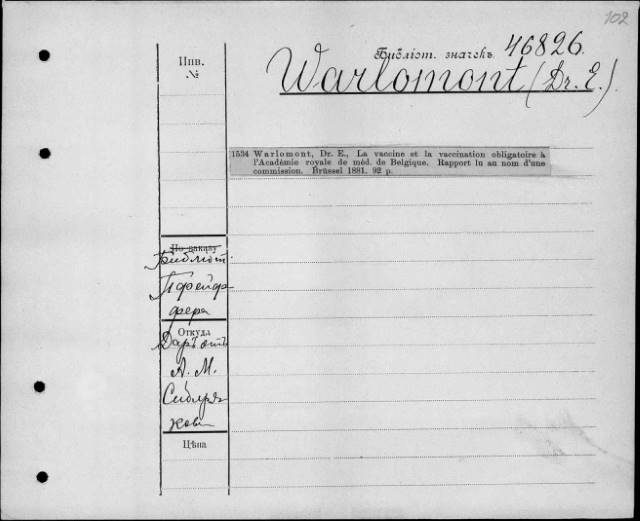 102
Инв.
№
Библіот. значекъ 46826.
Warlomont (Dr. E.)
1534 Warlomont, Dr. E., La vaccine et la vaccination obligatoire à
l'Académie royale de méd. de Belgique. Rapport lu au nom d'une
commission. Brüssel 1881. 92 p.
По заказу
Библіот.
Пфейф-
фера
Откуда
Даръ отъ
А. М.
Сибиря-
кова
Цѣна